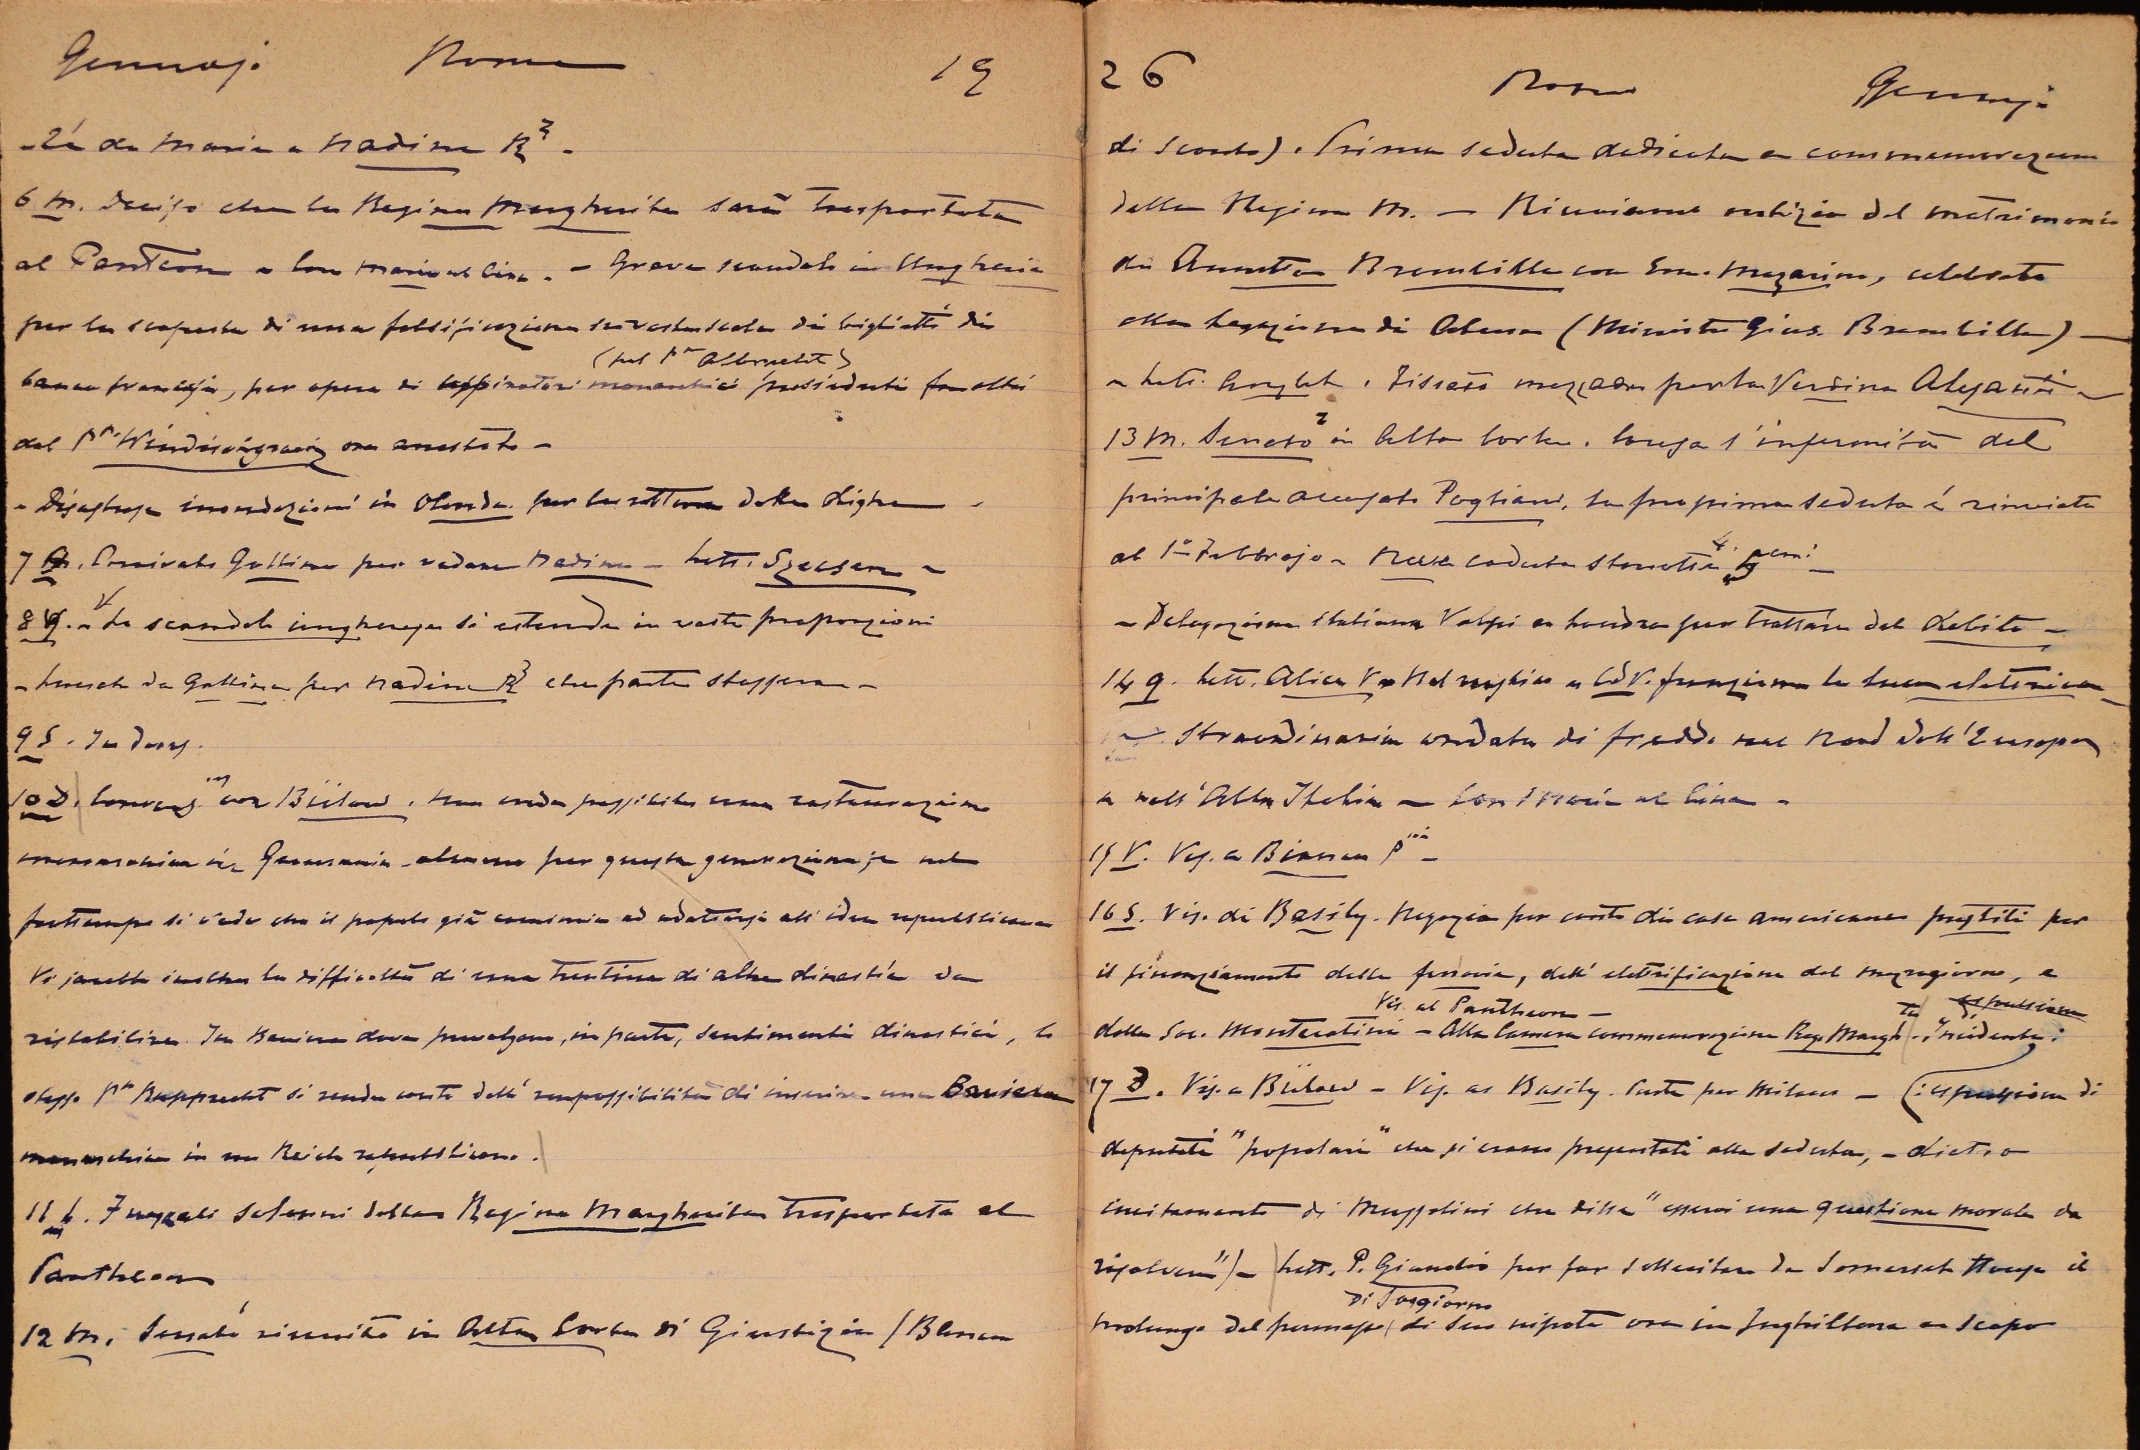 Gennajo Roma 19
- Tè da Maria a Nadine R -
6 M. Deciso che la Regina Margherita sarà trasportata
al Panteon - Con Maria al Cine. - Grave scandalo in Ungheria
per la scoperta di una falsificazione su vasta scala di biglietti di
(pul Pr Albrecht)
banca francesi, per opera di monarchici presieduti fra altri
dal Pr. Windischgraetz ora arrestato -
- Disastrose inondazioni in Olanda per la rottura delle dighe -
7 G. Arrivato Gallina per vedere Nadine - Lett. Szecsen -
8 V. - Lo scandalo ungherese si estende in vaste proporzioni
- Lunch da Gallina per Nadine R che parte stassera -
9 S. In Borg.
10 D. Convers.ne con Bülow. Non crede possibile una restaurazione
monarchica in Germania - almeno per questa generazione, e nel
frattempo si vede che il popolo già comincia ad adattarsi all'idea repubblicana
Vi sarebbe inoltre la difficoltà di una trentina di altre dinastie da
ristabilire. In Baviera dove prevalgono, in parte, sentimenti dinastici, lo
stesso Pr Rupprecht si rende conto dell'impossibilità di inserire una Baviera
monarchica in un Reich repubblicano.
11 L. Funerali solenni della Regina Margherita trasportata al
Pantheon
12 M. Senato riunito in Alta Corte di Giustizia (Banca
26 Roma Gennajo
di Sconto). Prima seduta dedicata a commemorazione
della Regina M. - Riceviamo notizia del matrimonio
di Annetta Brambilla con Em. Mazarino, celebrato
alla Legazione di Atene (Ministro Gius. Brambilla) -
- Lett. . Fissato mezzadro per la Verdina Aleganti -
13 M. Senato in Alta Corte. Causa l'infermità del
principale accusato Pogliani, la prossima seduta è rinviata
al 1º Febbrajo - Neve caduta stanotte 4 cent.
- Delegazione italiana Volpi a Londra per trattare del debito -
14 G. Lett. Alice V. Malraghino a Cd V. funziona la luce elettrica -
Straordinaria ondata di freddo nel Nord dell'Europa
e nell'Alta Italia - Con Maria al Cine -
15 V. Vis. a Biancu P -
16 S. Vis. di Basily. Negozia per conto di case americane prestiti per
il finanziamento delle ferrovie, dell'elettrificazione del mezzogiorno, e
Vis. al Pantheon -
della Soc. Montecatini - Alla Camera commemorazione Reg. Margh.ta - incidente:
17 D. Vis. a Bülow - Vis. a Basily. Parte per Milano - (: espulsione di
deputati "popolari" che si erano presentati alla seduta, - dietro
incitamento di Mussolini che disse "esservi una questione morale da
risolvere") - Lett. P. Giaudio per far sollecitare da Somerset House il
di soggiorno
prolungo del permesso di suo nipote ora in Inghilterra a scopo